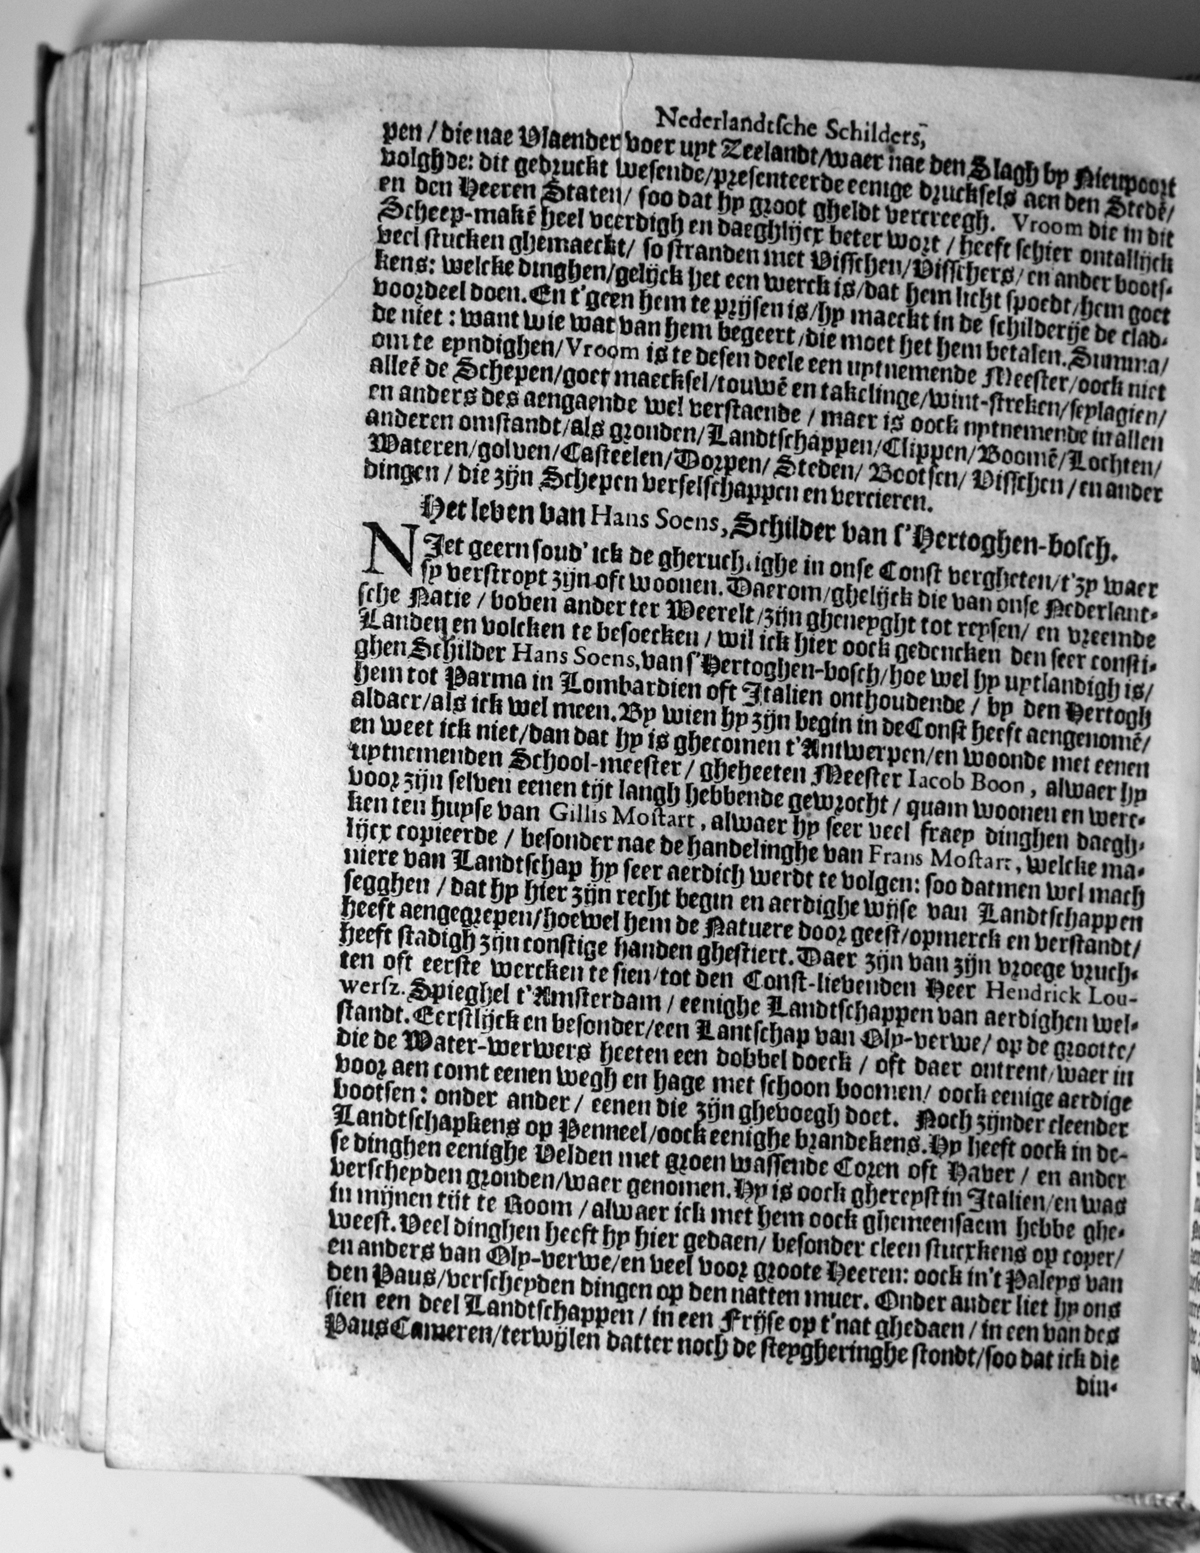 Nederlandtsche Schilders,
pen / die nae Vlaender voer uyt Zeelandt/waer nae den Slagh by Nieupoort
volghde: dit gedruckt wesende/presenteerde eenige drucksels aen den Stedē/
en den Heeren Staten/ soo dat hy groot gheldt vercreegh. Vroom die in dit
Scheep-makē heel veerdigh en daeghlijcx beter wort / heeft schier ontallijck
veel stucken ghemaeckt/ so stranden met Visschen/Visschers/ en ander boots-
kens: welcke dinghen/gelijck het een werck is/dat hem licht spoedt/hem goet
voordeel doen. En t'geen hem te prijsen is/hy maeckt in de schilderije de clad-
de niet : want wie wat van hem begeert/die moet het hem betalen. Summa/
om te eyndighen/Vroom is te desen deele een uytnemende Meester/oock niet
alleē de Schepen/goet maecksel/touwē en takelinge/wint-streken/seylagien/
en anders des aengaende wel verstaende / maer is oock uytnemende in allen
anderen omstandt/als gronden/Landtschappen/Clippen/Boomē/Lochten/
Wateren/golven/Casteelen/Dorpen/ Steden/ Bootsen/ Visschen / en ander
dingen / die zijn Schepen verselschappen en vercieren.
Het leven van Hans Soens, Schilder van s'Hertoghen-bosch.
NJet geern soud' ick de gheruchtighe in onse Const vergheten/t'zy waer
sy verstroyt zijn oft woonen. Daerom/ghelijck die van onse Nederlant-
sche Natie / boven ander ter Weerelt/zijn gheneyght tot reysen/ en vreemde
Landen en volcken te besoecken / wil ick hier oock gedencken den seer consti-
ghen Schilder Hans Soens, van s'Hertoghen-bosch/hoe wel hy uytlandigh is/
hem tot Parma in Lombardien oft Jtalien onthoudende / by den Hertogh
aldaer/als ick wel meen. By wien hy zijn begin in de Const heeft aengenomē/
en weet ick niet/dan dat hy is ghecomen t'Antwerpen/en woonde met eenen
uytnemenden School-meester / gheheeten Meester Iacob Boon, alwaer hy
voor zijn selven eenen tijt langh hebbende gewrocht / quam woonen en werc-
ken ten huyse van Gillis Mostart, alwaer hy seer veel fraey dinghen daegh-
lijcx copieerde / besonder nae de handelinghe van Frans Mostart, welcke ma-
niere van Landtschap hy seer aerdich werdt te volgen: soo datmen wel mach
segghen / dat hy hier zijn recht begin en aerdighe wijse van Landtschappen
heeft aengegrepen/hoewel hem de Natuere door geest/opmerck en verstandt/
heeft stadigh zijn constige handen ghestiert. Daer zijn van zijn vroege vruch-
ten oft eerste wercken te sien/tot den Const-lievenden Heer Hendrick Lou-
wersz. Spieghel t'Amsterdam / eenighe Landtschappen van aerdighen wel-
standt. Eerstlijck en besonder/een Lantschap van Oly-verwe/ op de grootte/
die de Water-werwers heeten een dobbel doeck / oft daer ontrent/waer in
voor aen comt eenen wegh en hage met schoon boomen/ oock eenige aerdige
bootsen: onder ander / eenen die zijn ghevoegh doet. Noch zijnder cleender
Landtschapkens op Penneel/oock eenighe brandekens. Hy heeft oock in de-
se dinghen eenighe Velden met groen wassende Coren oft Haver / en ander
verscheyden gronden/waer genomen. Hy is oock ghereyst in Jtalien/en was
in mijnen tijt te Room / alwaer ick met hem oock ghemeensaem hebbe ghe-
weest. Veel dinghen heeft hy hier gedaen/ besonder cleen stucxkens op coper/
en anders van Oly-verwe/en veel voor groote Heeren: oock in't Paleys van
den Paus/verscheyden dingen op den natten muer. Onder ander liet hy ons
sien een deel Landtschappen / in een Frijse op t'nat ghedaen / in een van des
Paus Cameren/terwijlen datter noch de steygheringhe stondt/soo dat ick die
din-